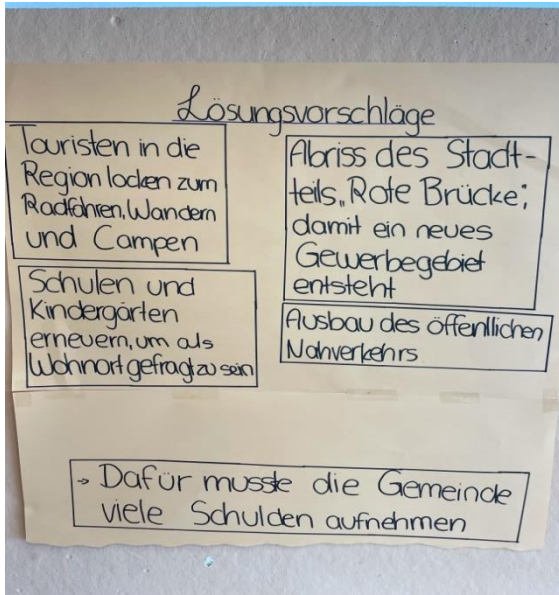 Lösungsvorschläge
Touristen in die
Region locken zum
Radfahren, Wandern
und Campen
Schulen und
Kindergärten
erneuern, um als
Wohnort gefragt zu sein
Abriss des Stadt-
teils „Rote Brücke“,
damit ein neues
Gewerbegebiet
entsteht
Ausbau des öffentlichen
Nahverkehrs
→ Dafür musste die Gemeinde
viele Schulden aufnehmen